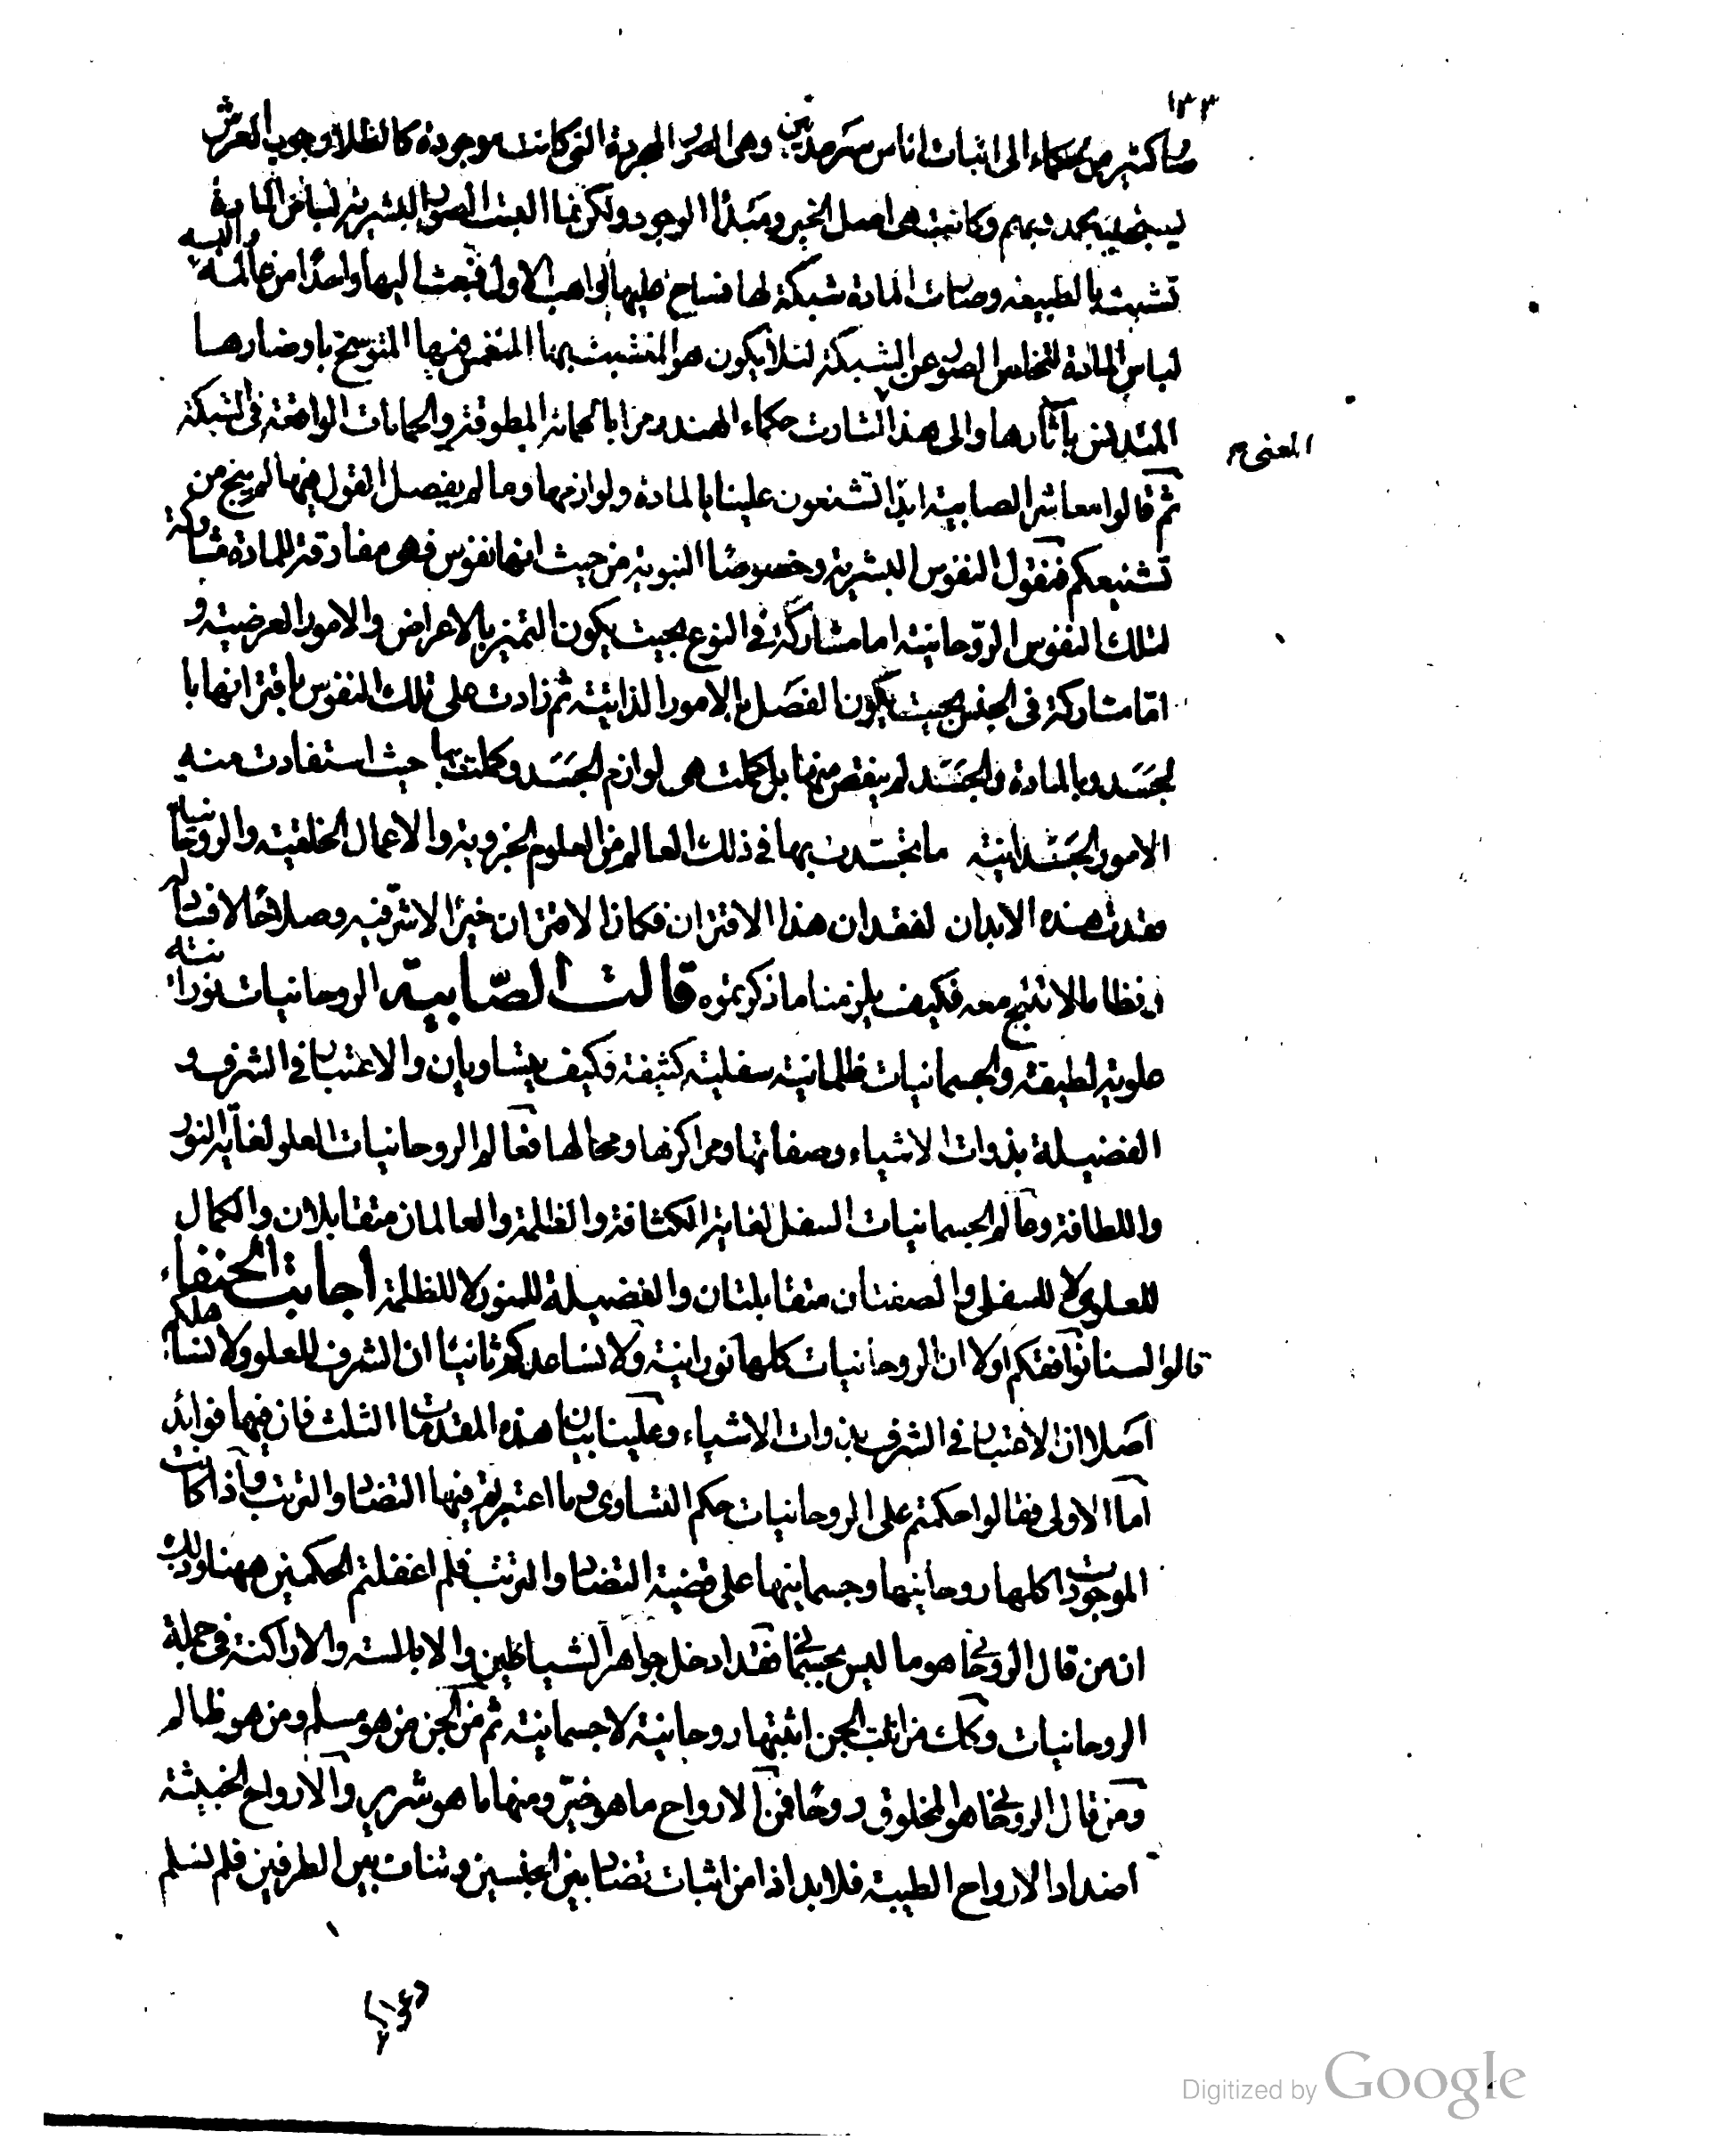 ١٣٣
صار كثير من الحكماء الى اثبات اناس سرمديين وهى الصور المجردة التى كانت موجودة كالظلال حول العرش
يسبحون بحمد ربهم وكانت هى اصل الخير ومبدا الوجود ولكن لما البست الصور البشرية لباس المادة
تشبثت بالطبيعة وصارت المادة شبكة لها فساح عليها الواهب الاول فبعث اليها واحدا من عالمه والبسه
لباس المادة لتخلص الصور عن الشبكة لئلا يكون هو المتشبث بها المنغمس فيها المتوسخ باوضارها
المتدنس بآثارها والى هذا اشارت حكماء الهند رمزا بالحمامة المطوقة والحمامات الواقعة فى الشبكة
المعنى
ثم قالوا معاشر الصابية ابدا تشنعون علينا بالمادة ولوازمها وما لم يفصل القول فيها لم ينج من
تشنيعكم فنقول النفوس البشرية وخصوصا النبوية من حيث انها نفوس فهى مفارقة للمادة مشاركة
لتلك النفوس الروحانية اما مشاركة فى النوع بحيث يكون التميز بالاعراض والامور العرضية و
اما مشاركة فى الجنس بحيث يكون الفصل بالامور الذاتية ثم زادت على تلك النفوس باقترانها با
لجسد وبالمادة والجسد لم ينقص منها بل كملت هى لوازم الجسد وكملت بها حيث استفادت منه
الامور الجسدانية ما تجسدت بها فى ذلك العالم من العلوم الجزوية والاعمال الخلقية والروحانيات
فقدت هذه الابدان لفقدان هذا الاقتران فكان الاقتران خيرا لا شر فيه وصلاحا لا فساد له
ونظاما لا ثبج معه فكيف يلزمنا ما ذكرتموه قالت الصابية الروحانيات نورانية
علوية لطيفة والجسمانيات ظلمانية سفلية كثيفة فكيف يتساويان والاعتبار فى الشرف و
الفضيلة بذوات الاشياء وصفاتها ومراكزها ومحالها فعالم الروحانيات العلو لغاية النور
واللطافة وعالم الجسمانيات السفل لغاية الكثافة والظلمة والعالمان متقابلان والكمال
للعلوى لا للسفلى والصفتان متقابلتان والفضيلة للنور لا للظلمة اجابت الحنفاء
قالوا لسنا نوافقكم اولا ان الروحانيات كلها نورانية ولا نساعدكم ثانيا ان الشرف للعلو ولا نساهلكم
اصلا ان الاعتبار فى الشرف بذوات الاشياء وعلينا بيان هذه المقدمات الثلث فان فيها فوائد
اما الاولى فقالوا حكمتم على الروحانيات حكم التساوى وما اعتبرتم فيها التضاد والترتب واذا كانت
الموجودات كلها روحانيها وجسمانيها على قضية التضاد والترتب فلم اغفلتم الحكمين ههنا وذلك
ان من قال الروحانى هو ما ليس بجسمانى فقد ادخل جواهر الشياطين والابالسة والاراكنة فى جملة
الروحانيات وكذلك من اثبت الجن اثبتها روحانية لا جسمانية ثم من الجن من هو مسلم ومن هو ظالم
ومن قال الروحانى هو المخلوق روحا فمن الارواح ما هو خير ومنها ما هو شرير والارواح الخبيثة
اضداد الارواح الطيبة فلا بد اذا من اثبات تضاد بين الجنسين وتناف بين الطرفين فلم نسلم
Digitized by Google